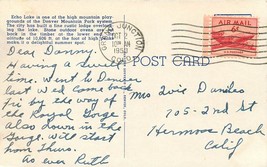 Echo Lake is one of the high mountain play-
grounds of the Denver Mountain Park System.
The city has built a fine rustic lodge overlook-
ing the lake. Stone outdoor ovens are
back in the timber at the lower end. The
altitude of 10,600 ft. at the foot of high
makes it a delightful summer spot.
JUNCTION
OCT
10 AM
1950
AIR MAIL
6¢
POST CARD
Dear Danny.
Having a
time. Went to Denver
last Wed. Came back
Fri by the way of
the Royal Gorge
also down in the
Gorge. Will start
from Thurs.
As ever Ruth
Mrs Daniles
705-2nd St
Hermosa Beach
Calif